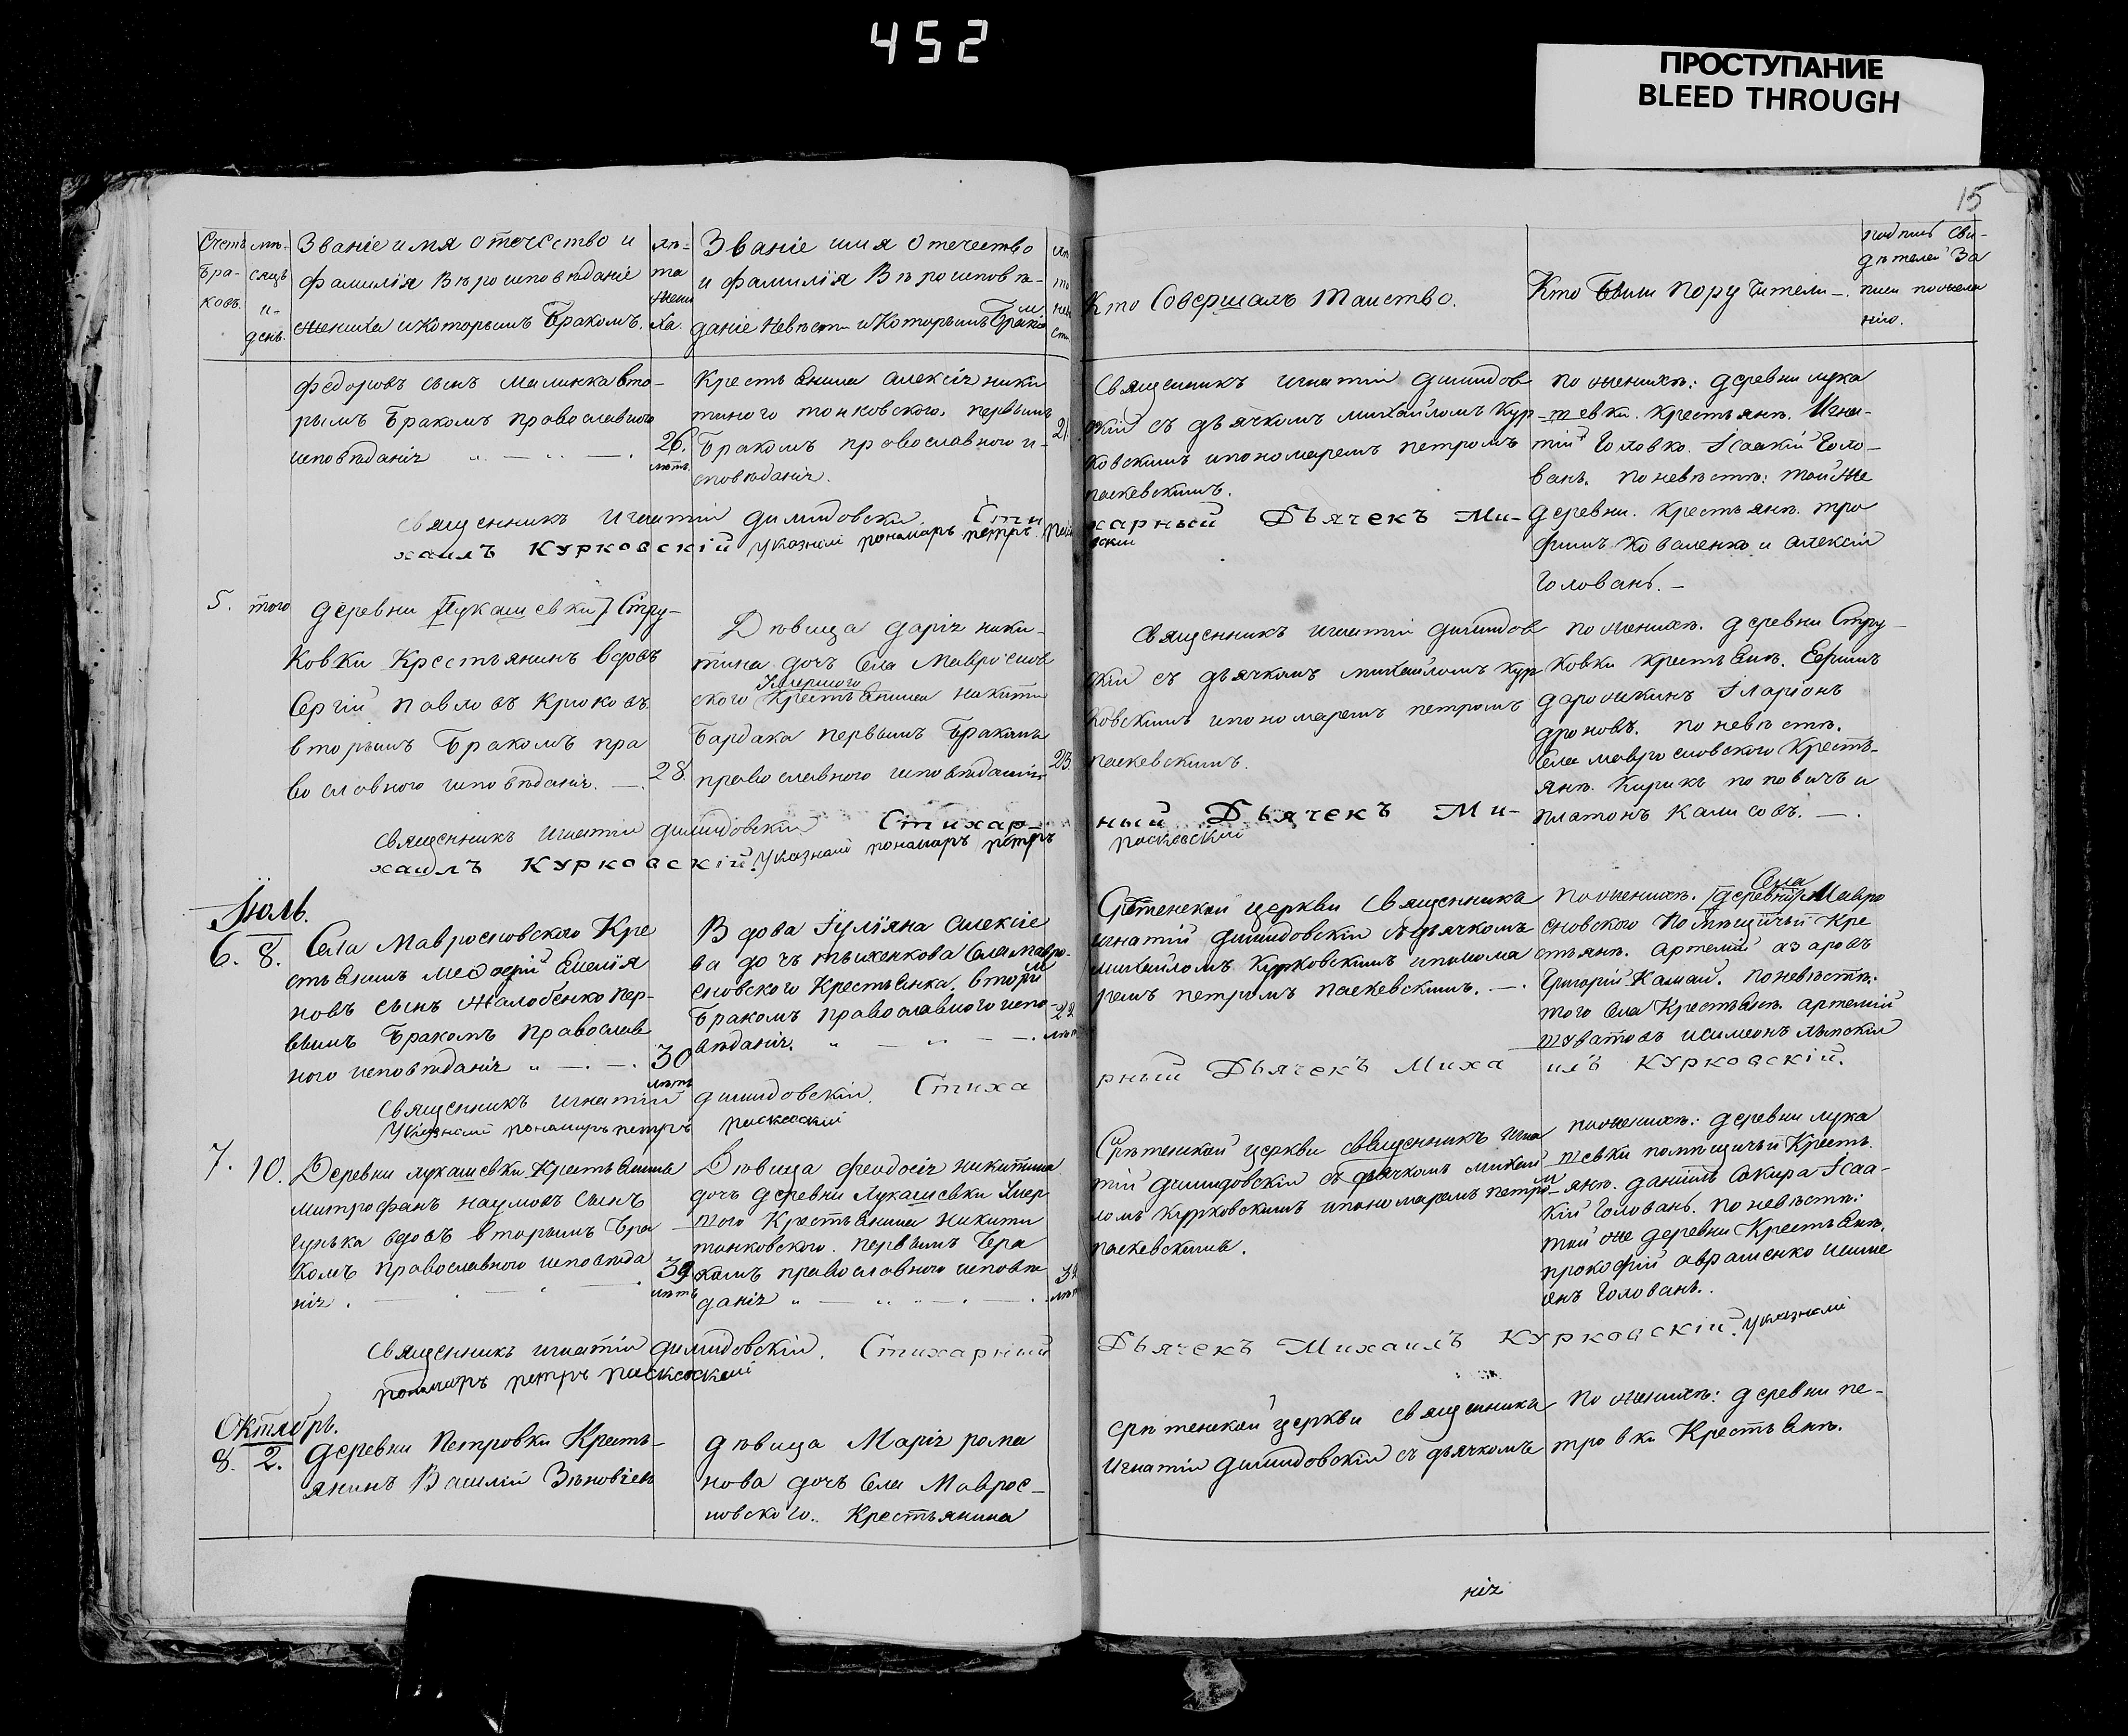 452
ПРОСТУПАНИЕ
BLEED THROUGH
15
Счетъ бра-ковъ.
мѣ-сяцъ и-день.
Званіе имя отечество и
фамилія Вѣроисповѣданіе
жениха и которымъ Бракомъ.
лѣ-та жени ха.
Званіе имя отечество
и фамилія Вѣроисповѣ-
даніе Невѣсты и Которымъ Бракомъ
Кто Совершалъ Таинство.
Кто Были Поручители —.
подпись сви-
дѣтелей За
писи по жела
нію.
Федоровъ сынъ Малинка вто-
рымъ Бракомъ православного
исповѣданія
26.
лѣтъ.
Крестьянина Алексія ники
тиного тонковского. первымъ
Бракомъ православного и-
сповѣданія.
21
Священникъ игнатій димидов
скій съ дьячкомъ михайломъ Кур
ковскимъ и пономаремъ петромъ
паскевскимъ.
по женихѣ: деревни лука
шевки. крестьянѣ. Игна-
тій Головко. Ісаакій Голо-
ванъ. по невѣстѣ: той же
деревни. крестьянѣ. тро
фимъ Коваленко и Алексій
Голованъ. —
Священникъ Игнатій димидовскій Сти
харный Дьячекъ Ми-
хаилъ Курковскій Указный пономарь петръ
5. того
деревни [Лукашевки] Стру-
Ковки Крестьянинъ вдовъ
Сергій Павловъ Крюковъ
вторымъ Бракомъ пра
вославного исповѣданія. —.
28.
Дѣвица дарія ники-
тина дочь Села Мавроснов
ского Умершого Крестьянина никити
Бардака первымъ Бракомъ
православного исповѣданія
23
Священникъ игнатій димидов
скій съ дьячкомъ михайломъ Кур
ковскимъ и пономаремъ петромъ
паскевскимъ.
по женихѣ. деревни Стру-
Ковки крестьянѣ. Ефимъ
дарошкинъ Іларіонъ
дроновъ. по невѣстѣ.
Села мавросновского Кресть-
янѣ. Кирикъ поповичъ и
платонъ Калисовъ. —.
Священникъ Игнатій димидовскій Стихар-
ный Дьячекъ Ми-
хаилъ Курковскій. Указный пономарь петръ
паскевскій
Іюль.
6. 8.
Села Мавросновского Кре
стьянинъ Меѳодій Емелія
новъ сынъ Жалобенко пер-
вымъ Бракомъ Православ
ного исповѣданія
30
лѣтъ
Вдова Іуліяна Алексіе
ва дочь тыженкова Села мавро-
сновского Крестьянка. вторым
Бракомъ православного испо-
вѣданія.
22
Срѣтенской церкви Священникъ
игнатій димидовскій съ дьячкомъ
михайломъ Курковскимъ и понома
ремъ петромъ паскевскимъ. —.
по женихѣ. [деревни] Села Мавро
сновского Помѣщичьи Кре
стьянѣ. Артемій азаровъ
Григорій Камай. по невѣстѣ.
того Села Крестьянѣ. артемій
и симеонъ
Священникъ Игнатій димидовскій. Стиха
рный Дьячекъ Миха
илъ Курковскій.
Указный пономарь петръ паскевскій
7. 10.
Деревни лукашевки Крестьянинъ
митрофанъ наумовъ Сынъ
вдовъ вторымъ Бра
комъ Православного исповѣда
нія.
39
лѣтъ
Дѣвица феодосія никитина
дочь деревни Лукашевки Умер
шого Крестьянина никити
тонковского. первымъ Бра
комъ православного исповѣ
данія
Срѣтенской церкви священникъ игна
тій димидовскій съ дьячкомъ михаи
ломъ Курковскимъ и пономаремъ петром
паскевскимъ.
по женихѣ: деревни лука
шевки помѣщичьи Кресть
янѣ. Даніилъ Сокира Ісаа-
кій Голованъ. по невѣстѣ:
той же деревни Крестьянѣ.
прокофій авраменко и симе
онъ Голованъ..
Священникъ игнатій димидовскій. Стихарный
Дьячекъ Михаилъ Курковскій. Указный
пономарь петръ паскевскій
Октябрь.
8. 2.
деревни Петровки Кресть-
янинъ Василій Зѣновіевъ
дѣвица Марія рома
нова дочь Села Маврос-
новского.. Крестьянина
срѣтенской церкви священникъ
Игнатій димидовскій съ дьячкомъ
По женихѣ: деревни пе-
тровки Крестьянѣ.
нія